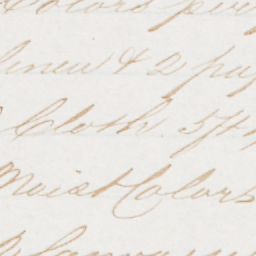 Colors per
linen & 2 pap
Cloth. 5/4
Moist Colors